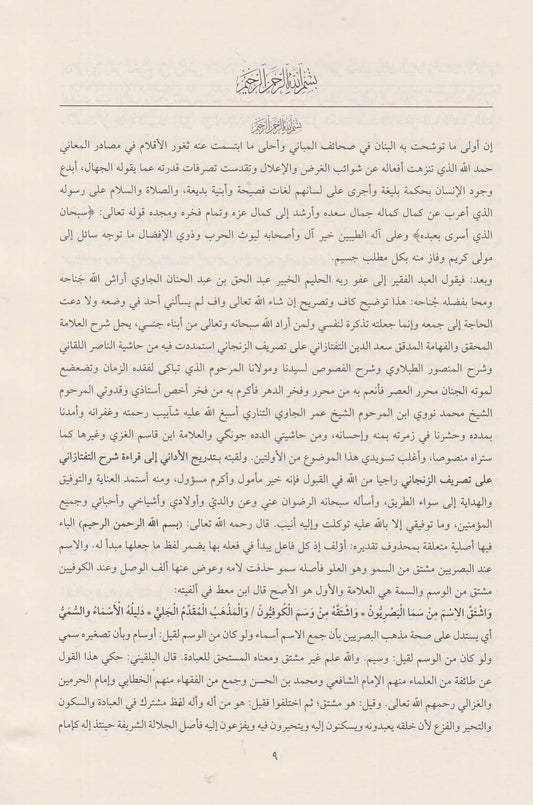 بسم الله الرحمن الرحيم
بسم الله الرحمن الرحيم
إن أولى ما توشحت به البنان في صحائف المباني وأحلى ما ابتسمت عنه ثغور الأقلام في مصادر المعاني
حمد الله الذي تنزهت أفعاله عن شوائب الغرض والإعلال وتقدست تصرفات قدرته عما يقوله الجهال، أبدع
وجود الإنسان بحكمة بليغة وأجرى على لسانهم لغات فصيحة وأبنية بديعة، والصلاة والسلام على رسوله
الذي أعرب عن كمال كماله جمال سعده وأرشد إلى كمال عزه وتمام فخره ومجده قوله تعالى: ﴿سبحان
الذي أسرى بعبده﴾ وعلى آله الطيبين خير آل وأصحابه ليوث الحرب وذوي الإفضال ما توجه سائل إلى
مولى كريم وفاز منه بكل مطلب جسيم.
وبعد: فيقول العبد الفقير إلى عفو ربه الحليم الخبير عبد الحق بن عبد الحنان الجاوي أراش الله جَناحه
ومحا بفضله جُناحه: هذا توضيح كاف وتصريح إن شاء الله تعالى واف لم يسألني أحد في وضعه ولا دعت
الحاجة إلى جمعه وإنما جعلته تذكرة لنفسي ولمن أراد الله سبحانه وتعالى من أبناء جنسي، يحل شرح العلامة
المحقق والفهامة المدقق سعد الدين التفتازاني على تصريف الزنجاني استمددت فيه من حاشية الناصر اللقاني
وشرح المنصور الطبلاوي وشرح الفصوص لسيدنا ومولانا المرحوم الذي تباكى لفقده الزمان وتضعضع
لموته الجنان محرر العصر فأنعم به من محرر وفخر الدهر فأكرم به من فخر أخص أستاذي وقدوتي المرحوم
الشيخ محمد نووي ابن المرحوم الشيخ عمر الجاوي التناري أسبغ الله عليه شآبيب رحمته وغفرانه وأمدنا
بمدده وحشرنا في زمرته بمنه وإحسانه، ومن حاشيتي الدده جونگي والعلامة ابن قاسم الغزي وغيرها كما
ستراه منصوصا، وأغلب تسويدي هذا الموضوع من الأولتين. ولقبته بـتدريج الأداني إلى قراءة شرح التفتازاني
على تصريف الزنجاني راجيا من الله في القبول فإنه خير مأمول وأكرم مسؤول، ومنه أستمد العناية والتوفيق
والهداية إلى سواء الطريق، وأسأله سبحانه الرضوان عني وعن والديّ وأولادي وأشياخي وأحبائي وجميع
المؤمنين، وما توفيقي إلا بالله عليه توكلت وإليه أنيب. قال رحمه الله تعالى: (بسم الله الرحمن الرحيم) الباء
فيها أصلية متعلقة بمحذوف تقديره: أؤلف إذ كل فاعل يبدأ في فعله بها يضمر لفظ ما جعلها مبدأ له. والاسم
عند البصريين مشتق من السمو وهو العلو فأصله سمو حذفت لامه وعوض عنها ألف الوصل وعند الكوفيين
مشتق من الوسم والسمة هي العلامة والأول هو الأصح قال ابن معط في ألفيته:
وَاشْتَقَّ الِاسْمَ مِنْ سَمَا الْبَصْرِيُّونْ * وَاشْتَقَّهُ مِنْ وَسَمَ الْكُوفِيُّونْ / وَالْمَذْهَبُ الْمُقَدَّمُ الْجَلِيُّ * دَلِيلُهُ الْأَسْمَاءُ وَالسُّمَيُّ
أي يستدل على صحة مذهب البصريين بأن جمع الاسم أسماء ولو كان من الوسم لقيل: أوسام وبأن تصغيره سمي
ولو كان من الوسم لقيل: وسيم. والله علم غير مشتق ومعناه المستحق للعبادة. قال البلقيني: حكي هذا القول
عن طائفة من العلماء منهم الإمام الشافعي ومحمد بن الحسن وجمع من الفقهاء منهم الخطابي وإمام الحرمين
والغزالي رحمهم الله تعالى. وقيل: هو مشتق؛ ثم اختلفوا فقيل: هو من أله وأله لفظ مشترك في العبادة والسكون
والتحير والفزع لأن خلقه يعبدونه ويسكنون إليه ويتحيرون فيه ويفزعون إليه فأصل الجلالة الشريفة حينئذ إله كإمام
٩